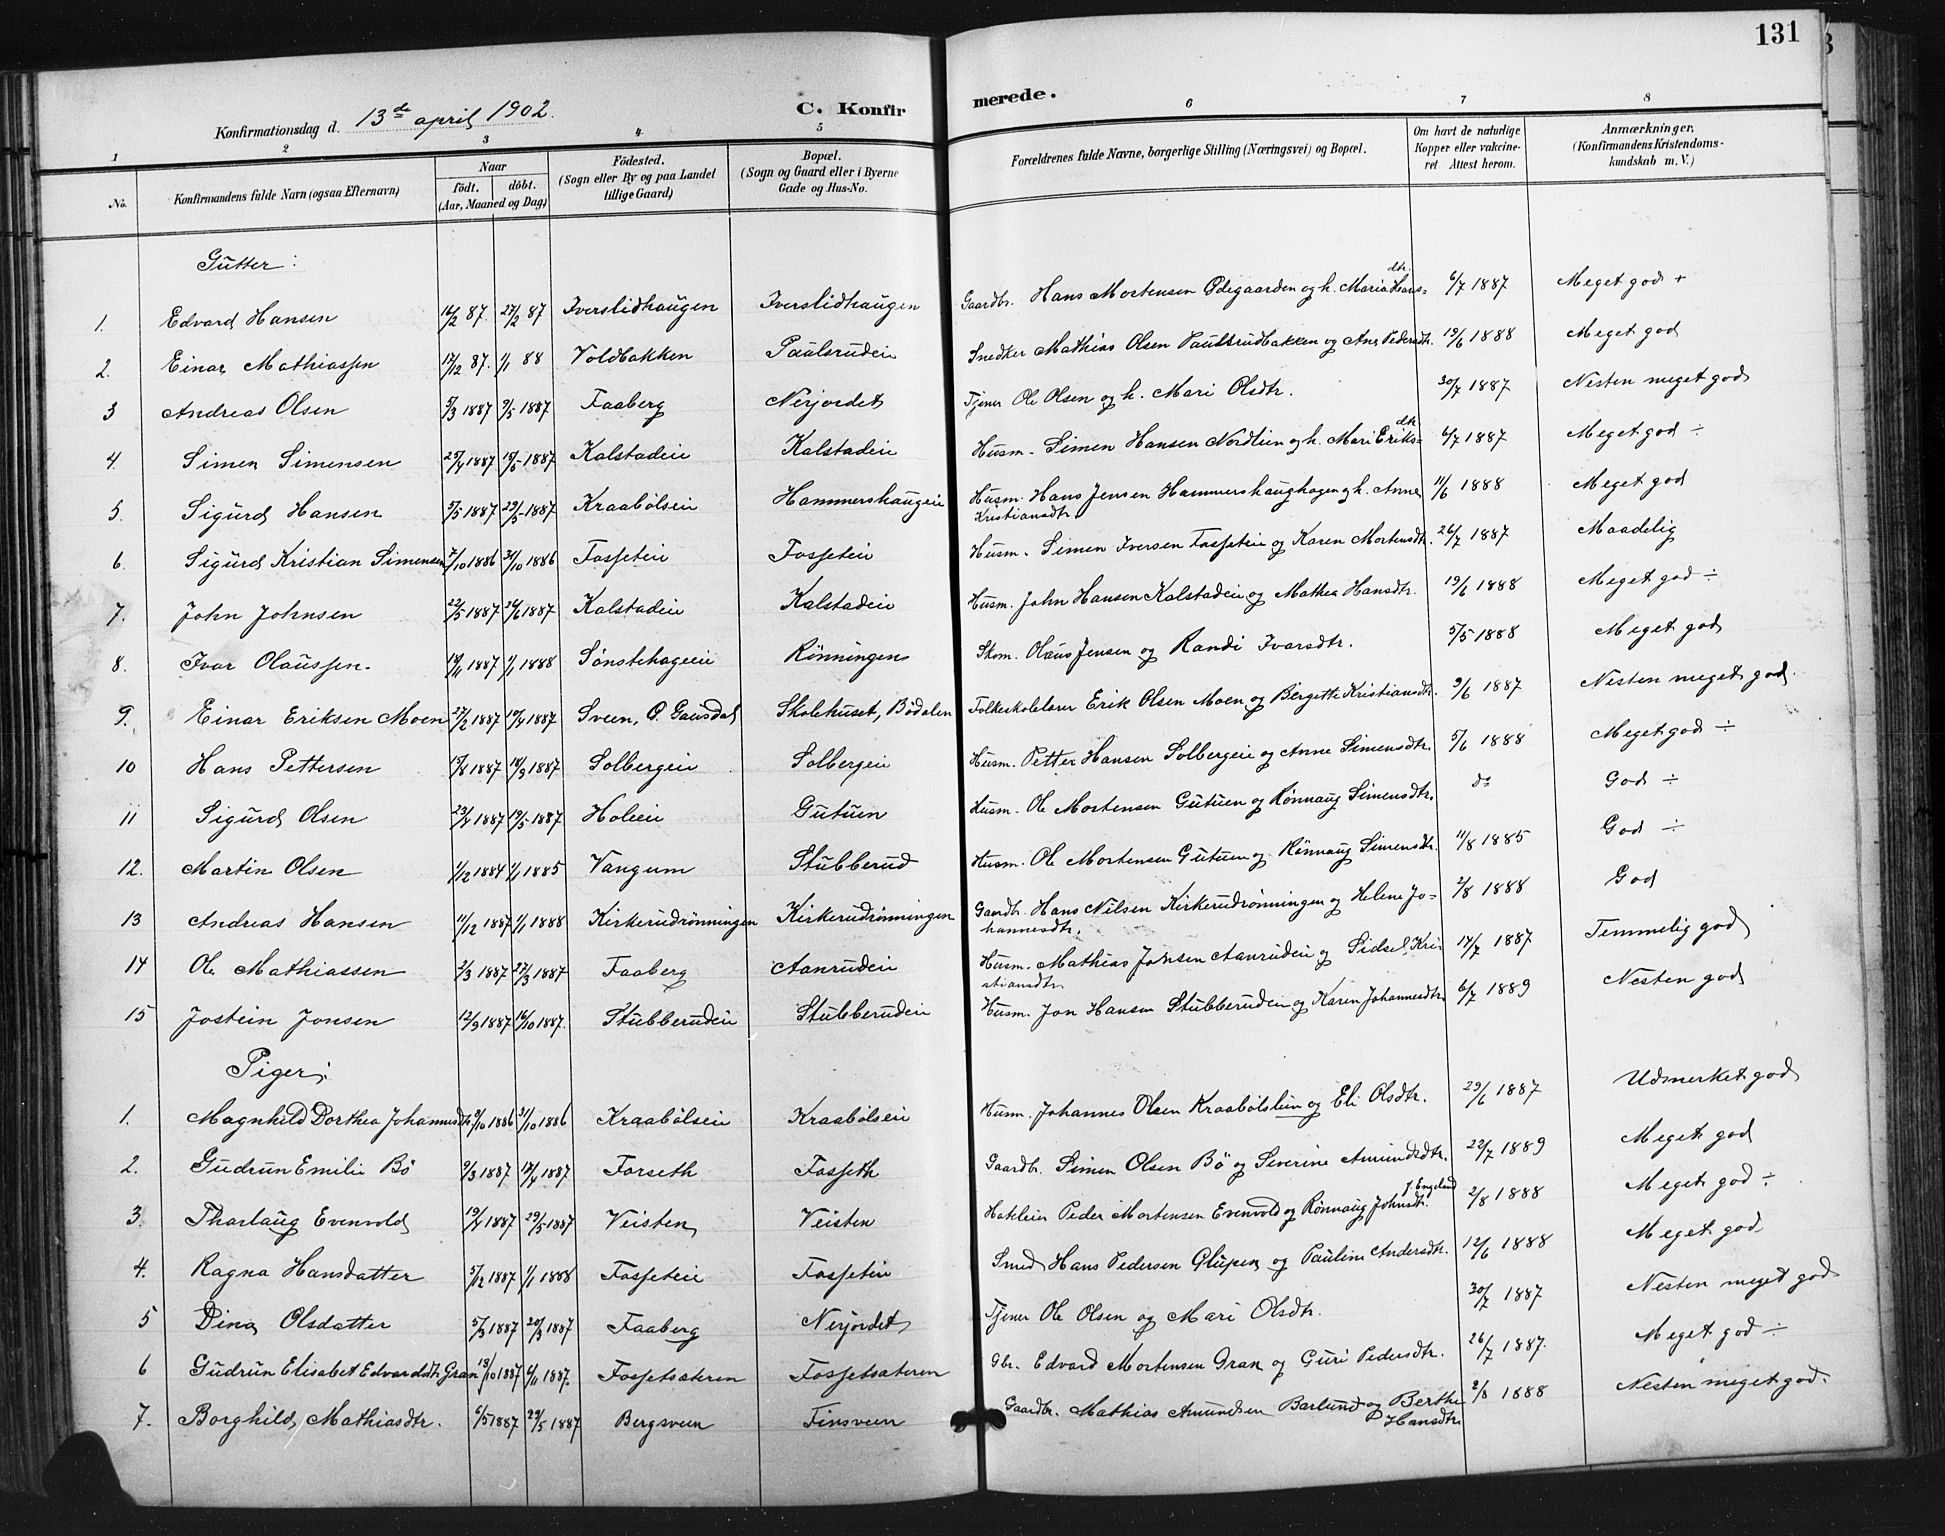 131
Konfirmationsdag d. 13de april 1902.
C. Konfirmerede.
1 2 3 4 5 6 7 8
No. Konfirmandens fulde Navn (ogsaa Efternavn) Naar født. døbt. (Aar, Maaned og Dag) Fødested. (Sogn eller By og paa Landet tillige Gaard) Bopæl. (Sogn og Gaard eller i Byerne Gade og Hus-No. Forældrenes fulde Navne, borgerlige Stilling (Næringsvei) og Bopæl. Om havt de naturlige Kopper eller vakcineret Attest herom. Anmærkninger, (Konfirmandens Kristendomskundskab m. V.)
Gutter:
1. Edvard Hansen 16/2 87. 27/2 87 Iverslidhaugen Iverslidhaugen Gaardbr. Hans Mortensen Ødegaarden og h. Maria Hansdtr. 6/7 1887 Meget god +
2. Einar Mathiassen 17/12 87. 1/1 88 Voldbakken Paulsrudeie Snedker Mathias Olsen Paulsrudbakken og Ane Pedersdtr. 19/6 1888 Meget god
3 Andreas Olsen 5/3 1887 9/5 1887 Faaberg Nerjordet Tjener Ole Olsen og h. Mari Olsdtr. 30/7 1887 Nesten meget god
4. Simen Simensen 25/4 1887 15/5 1887 Kalstadeie Kalstadeie Husm. Simen Hansen Nordlien og h. Mari Eriksdtr. 6/7 1887 Meget god ÷
5. Sigurd Hansen 5/5 1887 29/5 1887 Kraabølseie Hammershaugeie Husm. Hans Jensen Hammershaughagen og h. Anne Kristiansdtr. 11/6 1888 Meget god
6. Sigurd Kristian Simensen 7/10 1886 31/10 1886 Fosseteie Fosseteie Husm. Simen Iversen Fosseteie og Karen Mortensdtr. 26/7 1887 Maadelig
7. John Johnsen 22/5 1887 26/6 1887 Kalstadeie Kalstadeie Husm. John Hansen Kalstadeie og Mathea Hansdtr. 19/6 1888 Meget god ÷
8. Ivar Olaussen. 19/11 1887 1/1 1888 Sønstehageeie Rønningen Skom. Olaus Jensen og Randi Ivarsdtr. 5/5 1888 Meget god
9. Einar Eriksen Moen 27/2 1887 19/4 1887 Sveen, Ø. Gausdal Skolehuset, Bødalen Folkeskolelærer Erik Olsen Moen og Bergette Kristiansdtr. 9/6 1887 Nesten meget god.
10 Hans Pettersen 15/8 1887 18/9 1887 Solbergeie Solbergeie Husm. Petter Hansen Solbergeie og Anne Simensdtr. 5/6 1888 Meget god ÷
11 Sigurd Olsen 23/4 1887 19/5 1887 Holeeie Gutuen Husm. Ole Mortensen Gutuen og Rønnaug Simensdtr. do God ÷
12. Martin Olsen 1/12 1884 1/1 1885 Vangum Stubberud Husm. Ole Mortensen Gutuen og Rønnaug Simensdtr. 11/8 1885 God ÷
13 Andreas Hansen 11/12 1887 1/1 1888 Kirkerudrønningen Kirkerudrønningen Gaardbr. Hans Nilsen Kirkerudrønningen og Helene Johannesdtr. 2/8 1888 God
14 Ole Mathiassen 2/3 1887 27/3 1887 Faaberg Aanrudeie Husm. Mathias Jonsen Aanrudeie og Sidsel Kristiansdtr. 14/7 1887 Temmelig god
15 Jostein Jonsen 12/9 1887 16/10 1887. Stubberudeie Stubberudeie Husm. Jon Hansen Stubberudeie og Karen Johannesdtr. 6/7 1889 Nesten god
Piger:
1. Magnhild Dorthea Johannesdtr. 9/10 1886 31/10 1886 Kraabølseie Kraabølseie Husm. Johannes Olsen Kraabølslien og Eli Olsdtr. 29/6 1887 Udmerket god
2. Gudrun Emilie Bø 9/3 1887 17/4 1887 Forseth Fosseth Gaardb. Simen Olsen Bø og Severine Amundsdtr. 22/7 1889 Meget god
3. Tharlaug Evenvold 19/4 1887 29/5 1887 Veisten Veisten Peder Mortensen Evenvold og Rønnaug Johnsdtr. f. Engeland 2/8 1888 Meget god ÷
4. Ragna Hansdatter 5/12 1887 1/1 1888 Fosseteie Fosseteie Smed Hans Pedersen Glupen og Pauline Andersdtr. 12/6 1888 Meget god
5 Dina Olsdatter 5/3 1887 20/3 1887 Faaberg Nerjordet Tjener Ole Olsen og Mari Olsdtr. 30/7 1887 Nesten meget god
6 Gudrun Elisabet Edvardsdtr Gran 13/10 1887 6/11 1887. Fossetsæteren Fossetsæteren Gbr. Edvard Mortensen Gran og Guri Pedersdtr. 26/7 1887. Meget god ÷
7. Borghild Mathiasdtr. 6/5 1887 29/5 1887 Bergsveen Finsveen Gaardbr. Mathias Amundsen Barlund og Berthe Hansdtr. 2/8 1888 Nesten meget god.